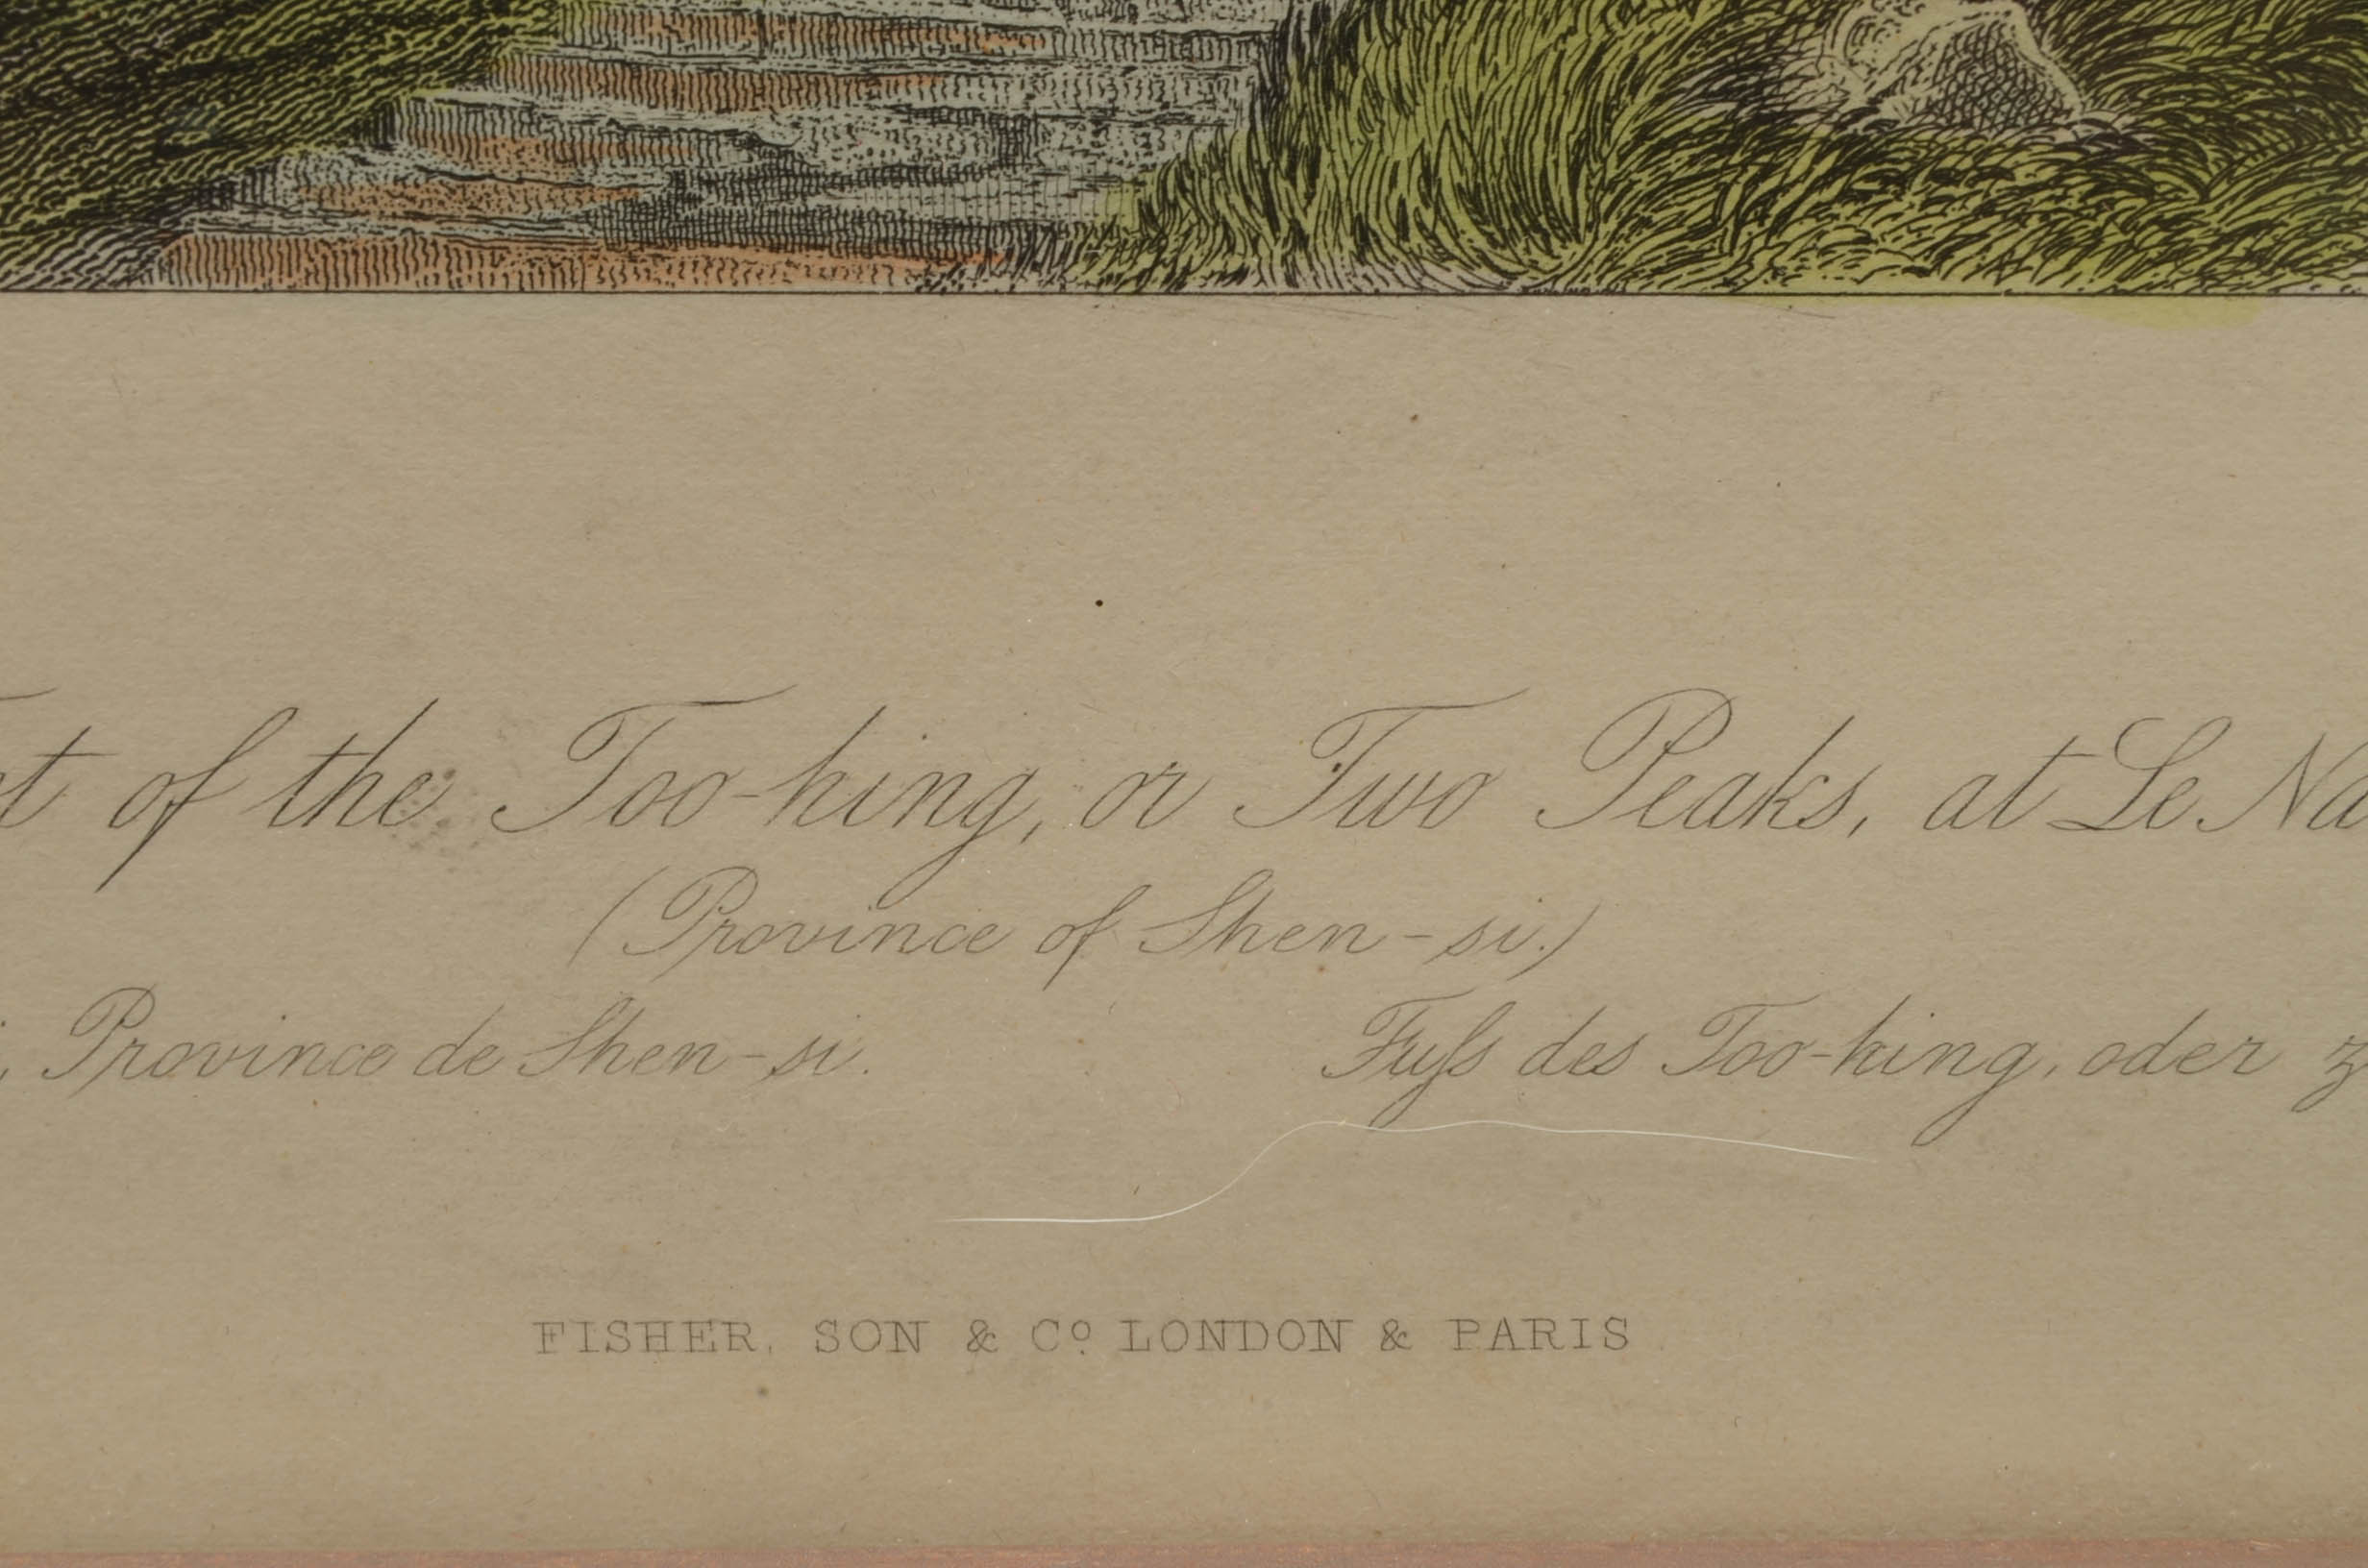 t of the Too-hing, or Two Peaks, at Le Na
(Province of Shen-si.)
, Province de Shen-si. Fuſs des Too-hing, oder z
FISHER, SON & Cº LONDON & PARIS